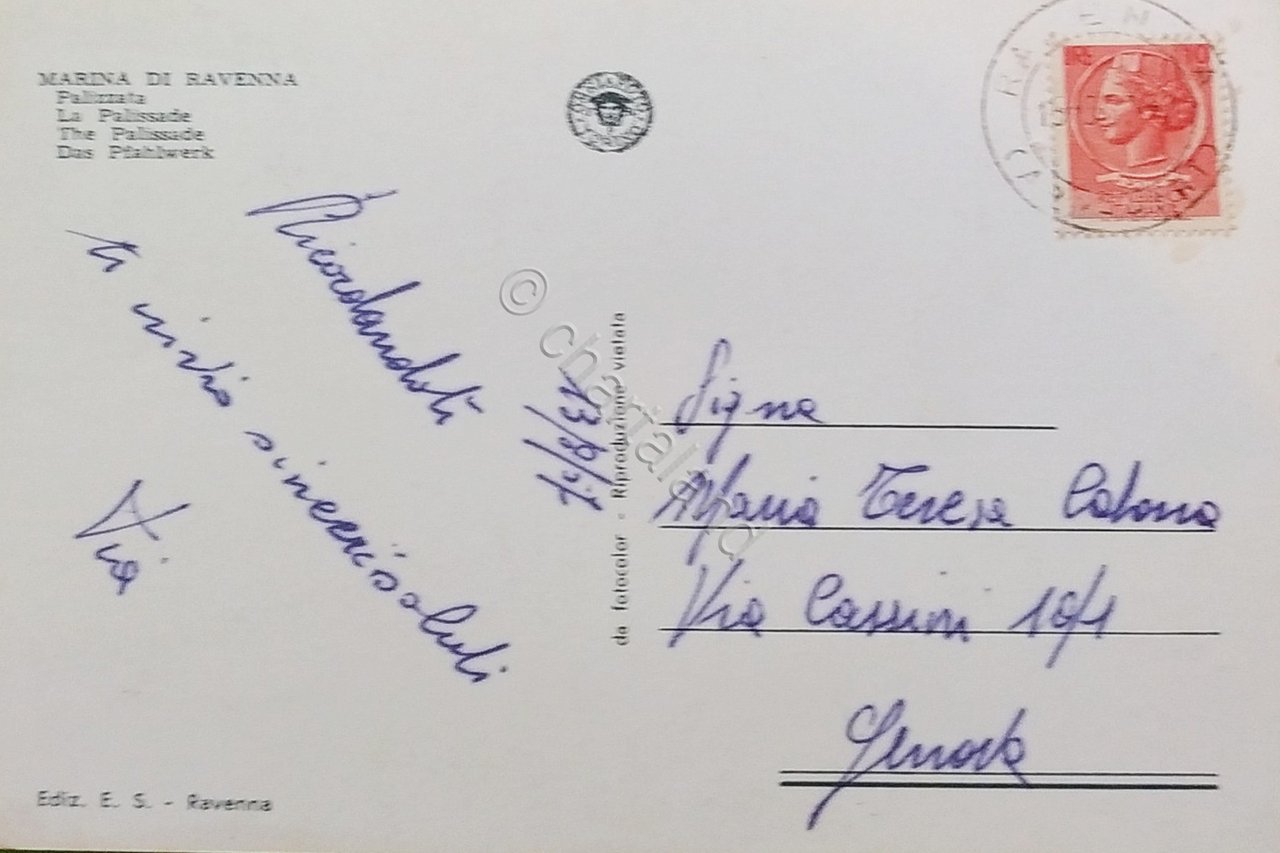 MARINA DI RAVENNA
Palizzata
La Palissade
The Palissade
Das Pfahlwerk
Ricordandoti
ti invio sinceri saluti
da fotocolor - Riproduzione vietata
Sig.na
Maria Teresa
Via Cassini 10/1
Genova
Ediz. E. S. - Ravenna
© chartaland